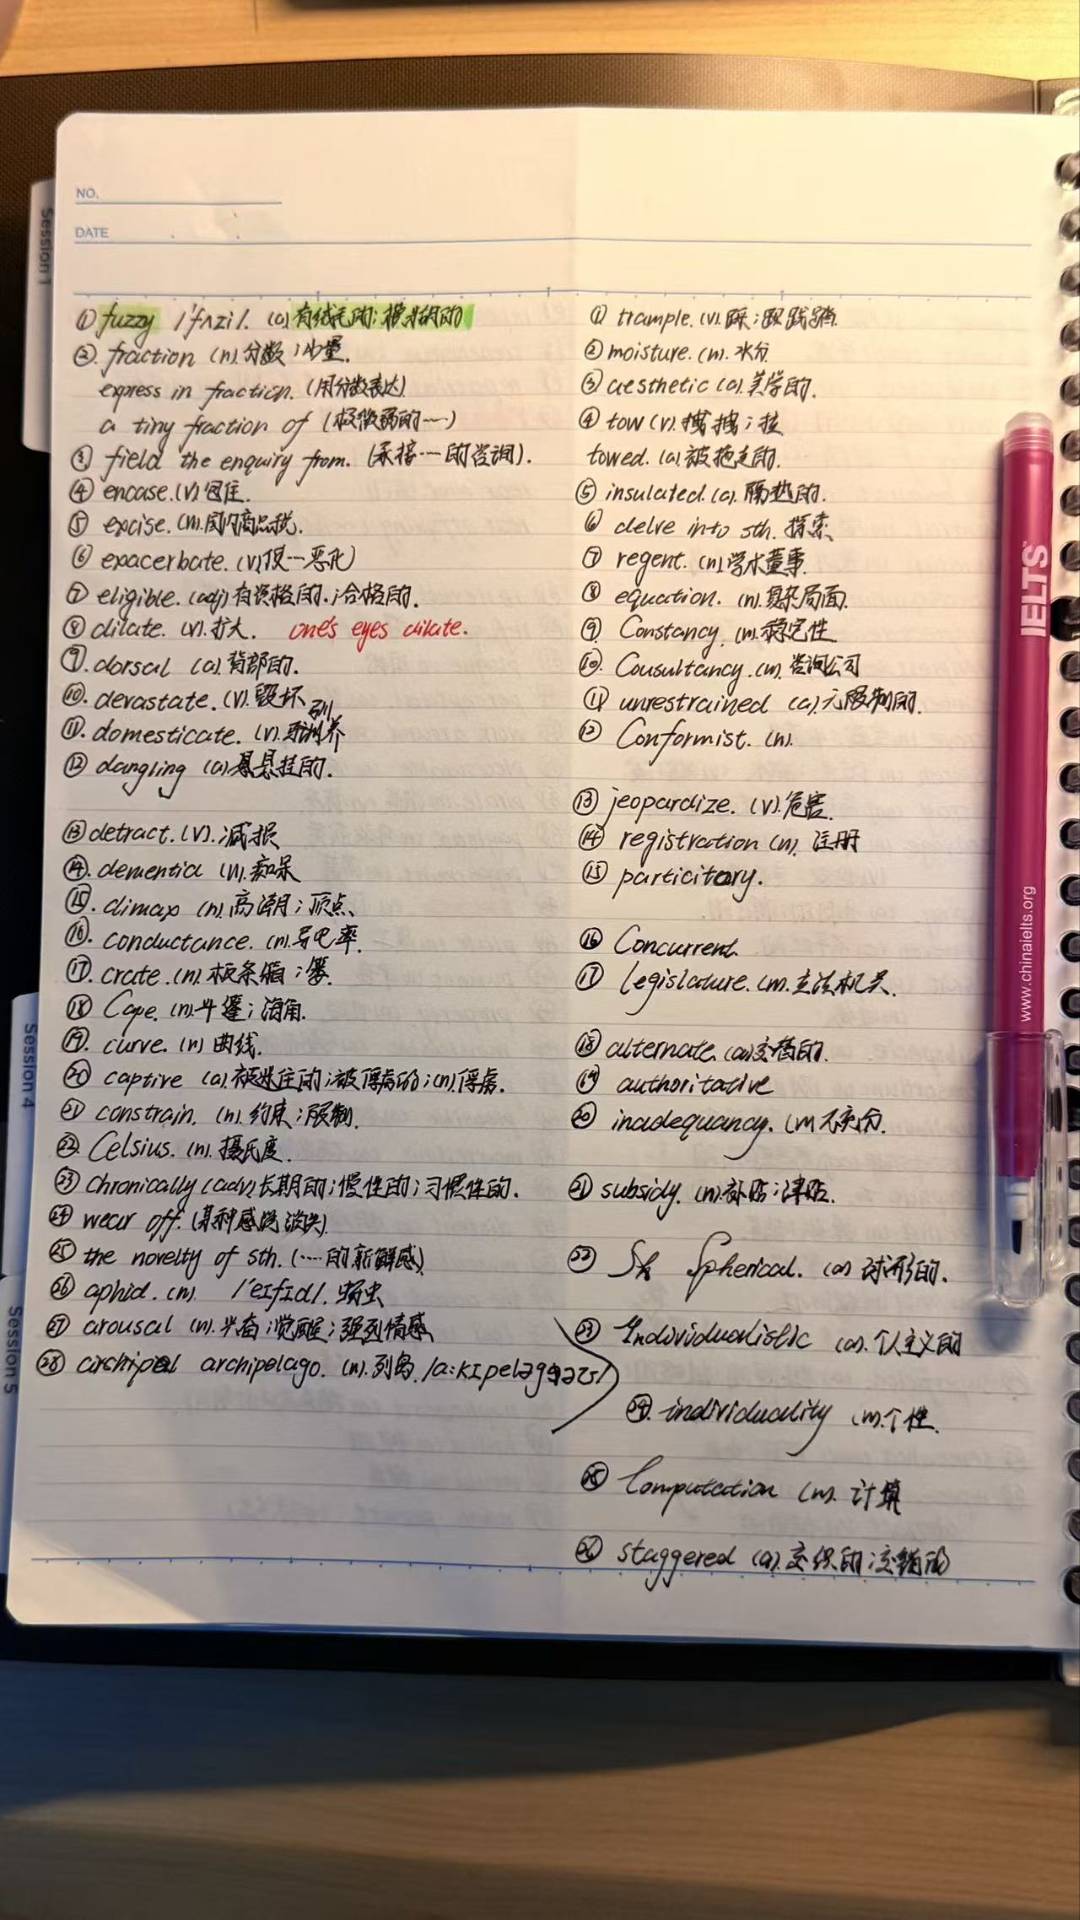 NO.
DATE
Session 1
① fuzzy /'fʌzi/. (a) 有绒毛的;模糊的
②. fraction (n).分数;少量.
express in fraction. (用分数表达)
a tiny fraction of (极微弱的…)
③ field the enquiry from. (承接…的咨询).
④ encase.(v)包住.
⑤ excise. (n).国内商品税.
⑥ exacerbate. (v)使…恶化)
⑦ eligible. (adj)有资格的.;合格的.
⑧ dilate. (v).扩大. one's eyes dilate.
⑨. dorsal (a).背部的.
⑩. devastate. (v).毁坏
⑪. domesticate. (v).驯养
⑫ dangling (a).悬挂的.
⑬ detract. (v).减损
⑭. dementia (n).痴呆
⑮. climax (n).高潮;顶点、
⑯. conductance. (n).导电率.
⑰. crate. (n).板条箱;篓.
⑱ Cape. (n).斗篷;海角.
⑲. curve. (n) 曲线.
⑳ captive (a).被迷住的;被俘虏的;(n).俘虏.
㉑ constrain. (n).约束;限制.
㉒ Celsius. (n).摄氏度.
㉓ chronically (adv)长期的;慢性的;习惯性的.
㉔ wear off. (某种感觉消失).
㉕ the novelty of sth. (…的新鲜感)
㉖ aphid. (n). /'eɪfɪd/. 蚜虫
㉗ arousal (n).兴奋;觉醒;强烈情感、
㉘ archipelago. (n).列岛.
① trample. (v).踩;践踏
② moisture. (n). 水分
③ aesthetic (a).美学的.
④ tow (v). 拽;拉
towed. (a).被拖走的.
⑤ insulated. (a). 隔热的.
⑥ delve into sth. 探索、
⑦ regent. (n).学术董事.
⑧ equation. (n).复杂局面.
⑨ Constancy. (n).稳定性
⑩. Cousultancy.(n).咨询公司
⑪ unrestrained (a).无限制的.
⑫ Conformist. (n).
⑬ jeopardize. (v).危害.
⑭ registration (n). 注册
⑮ particitory.
⑯ Concurrent.
⑰ legislature. (n).立法机关.
⑱ alternate. (a)交替的.
⑲ authoritative
⑳ inadequancy. (n 不充分.
㉑ subsidy. (n).补贴;津贴.
㉒ Spherical. (a) 球形的.
㉓ Individualistic (a).个人主义的
㉔. individuality (n).个性.
㉕ Computation (n). 计算
㉖ staggered (a).交织的;交错的
Session 4
Session 5
IELTS
www.chinaielts.org